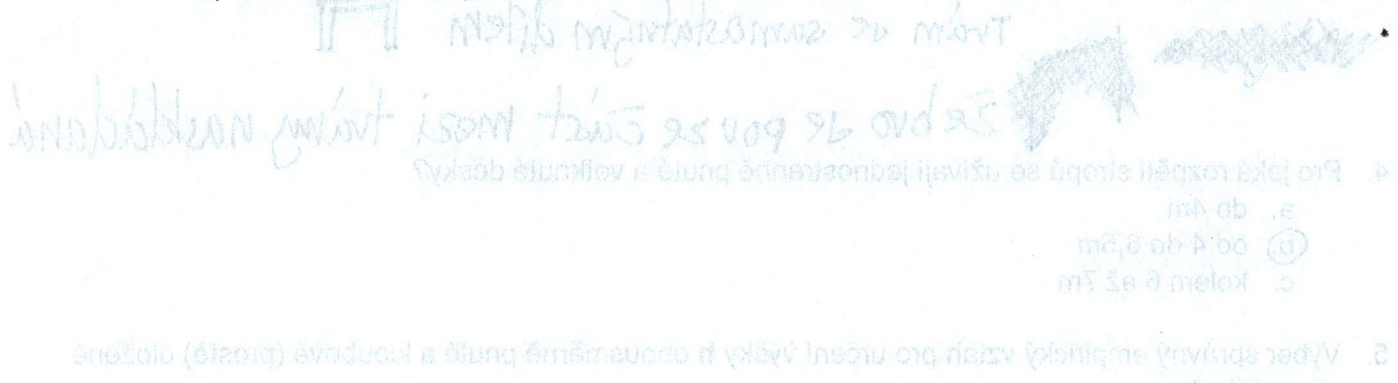 Trám se samostatným dílem
žebro je pouze část mezi trámy naskládaná
4. Pro jaká rozpětí stropů se užívají jednostranně pnuté a vetknuté desky?
a. do 4m
b. od 4 do 6,5m
c. kolem 6 až 7m
5. Vyber správný empirický vztah pro určení výšky h obousměrně pnuté a kloubově (prostě) uložené